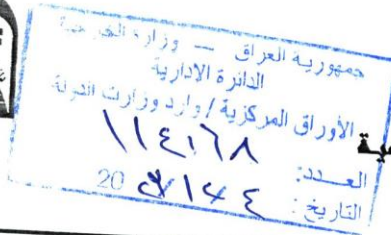 جمهورية العراق — وزارة الخارجية
الدائرة الادارية
الأوراق المركزية / وارد وزارت الدولة
العدد: ١١٤١٦٨
التاريخ: 20
ية